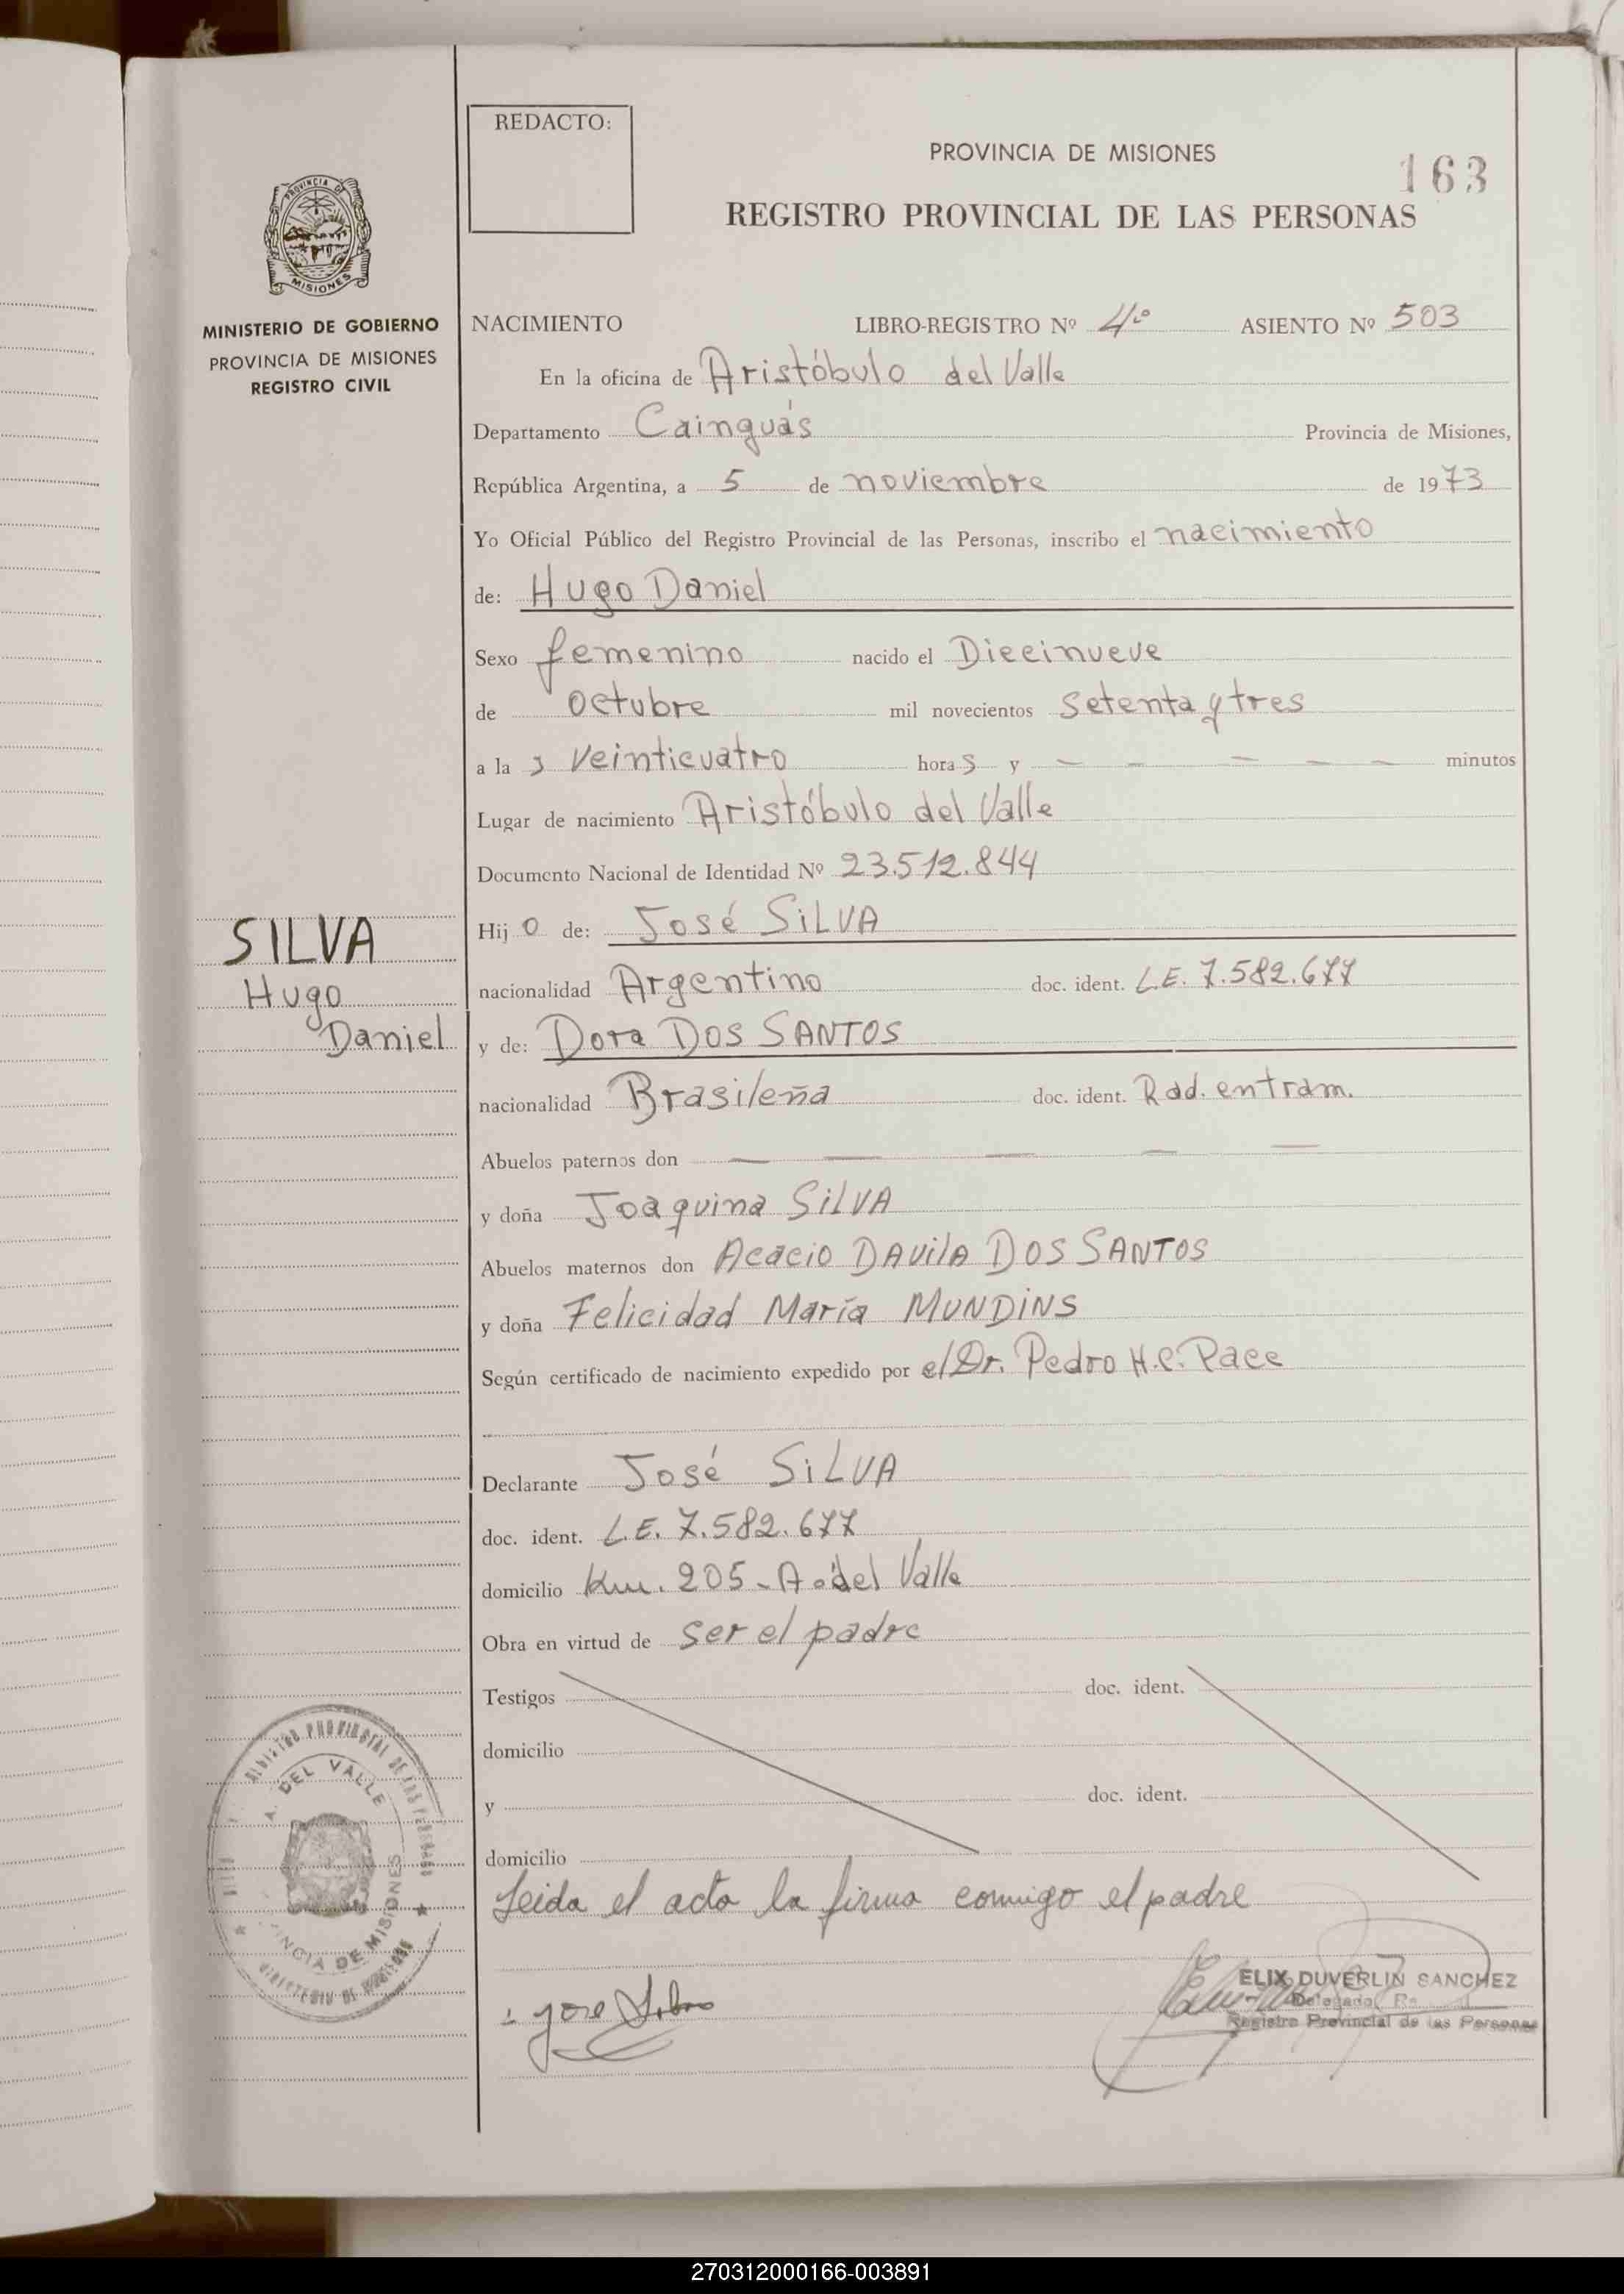 REDACTO:
PROVINCIA DE MISIONES
163
REGISTRO PROVINCIAL DE LAS PERSONAS
PROVINCIA DE
MISIONES
MINISTERIO DE GOBIERNO
PROVINCIA DE MISIONES
REGISTRO CIVIL
NACIMIENTO LIBRO-REGISTRO Nº 4º ASIENTO Nº 503
En la oficina de Aristóbulo del Valle
Departamento Cainguás Provincia de Misiones,
República Argentina, a 5 de noviembre de 1973
Yo Oficial Público del Registro Provincial de las Personas, inscribo el nacimiento
de: Hugo Daniel
Sexo femenino nacido el Diecinueve
de octubre mil novecientos setenta y tres
a la s veinticuatro hora s y — — — — — minutos
Lugar de nacimiento Aristóbulo del Valle
Documento Nacional de Identidad Nº 23.512.844
Hij o de: José SILVA
nacionalidad Argentino doc. ident. L.E. 7.582.677
y de: Dora DOS SANTOS
nacionalidad Brasileña doc. ident. Rad. en tram.
Abuelos paternos don — — — — —
y doña Joaquina SILVA
Abuelos maternos don Acacio DAVILA DOS SANTOS
y doña Felicidad María MUNDINS
Según certificado de nacimiento expedido por el Dr. Pedro H.C. Pace
Declarante José SILVA
doc. ident. L.E. 7.582.677
domicilio Km. 205 - A. del Valle
Obra en virtud de ser el padre
Testigos doc. ident.
domicilio
y doc. ident.
domicilio
Leida el acta la firma conmigo el padre
SILVA
Hugo
Daniel
REGISTRO PROVINCIAL DE LAS PERSONAS
A. DEL VALLE
PROVINCIA DE MISIONES
Jose Silva
ELIX DUVERLIN SANCHEZ
Delegado
Registro Provincial de las Personas
270312000166-003891